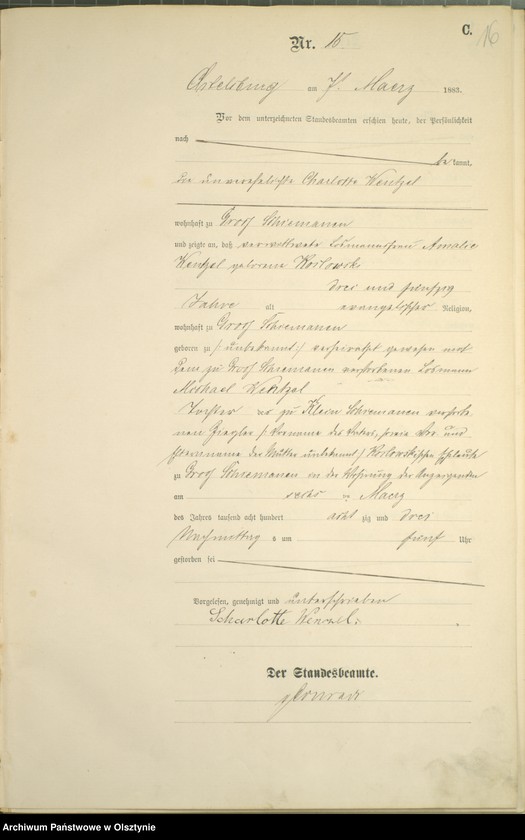 C.
16
Nr. 15.
Ortelsburg am 7t Maerz 1883.
Vor dem unterzeichneten Standesbeamten erschien heute, der Persönlichkeit
nach
be kannt,
die unverehelichte Charlotte Wentzel
wohnhaft zu Groß Schiemanen
und zeigte an, daß verwittwete Losmannsfrau Amalie
Wentzel geborene Koslowski
drei und fünfzig
Jahre alt evangelischer Religion,
wohnhaft zu Groß Schiemanen
geboren zu /: unbekannt :/ verheirathet gewesen mit
dem zu Groß Schiemanen verstorbenen Losmann
Michael Wentzel
Tochter der zu Klein Schiemanen verstorbe
nen Ziegler / Vorname des Vaters, sowie Vor und
Stammname der Mutter unbekannt / Koslowskischen Eheleute
zu Groß Schiemanen in der Wohnung der Anzeigenden
am sechs ten Maerz
des Jahres tausend acht hundert acht zig und drei
Nachmittag s um fünf Uhr
gestorben sei
Vorgelesen, genehmigt und unterschrieben
Scharlotte Wenzel.
Der Standesbeamte.
Archiwum Państwowe w Olsztynie